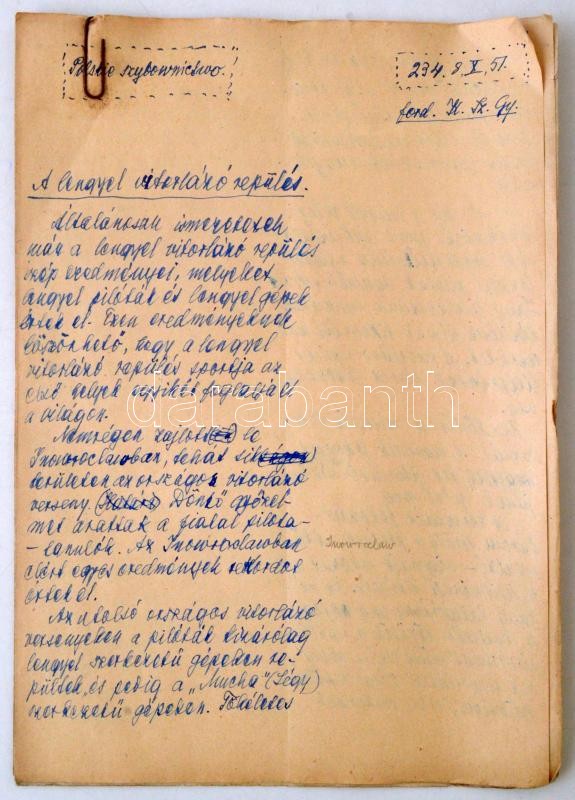 Polskie szybownictwo.
234. 8. V. 51.
ford. K. Sz. Gy.
A lengyel vitorlázó repülés.
Általánosan ismeretesek
már a lengyel vitorlázó repülés
szép eredményei, melyeket
lengyel pilóták és lengyel gépek
értek el. Ezen eredményeknek
köszönhető, hogy a lengyel
vitorlázó repülés sportja az
első helyek egyikét foglalja el
a világon.
Nemrégen zajlott le
Inowroclawban, tehát sík
területen az országos vitorlázó
verseny. Döntő győzel-
met arattak a fiatal pilóta-
-tanulók. Az Inowroclawban
Inowroclaw
elért egyes eredmények rekordot
értek el.
Az utolsó országos vitorlázó
versenyeken a pilóták kizárólag
lengyel szerkezetű gépeken re-
pültek, és pedig a „Mucha" (Légy)
szerkezetű gépeken. Tökéletes
darabanth